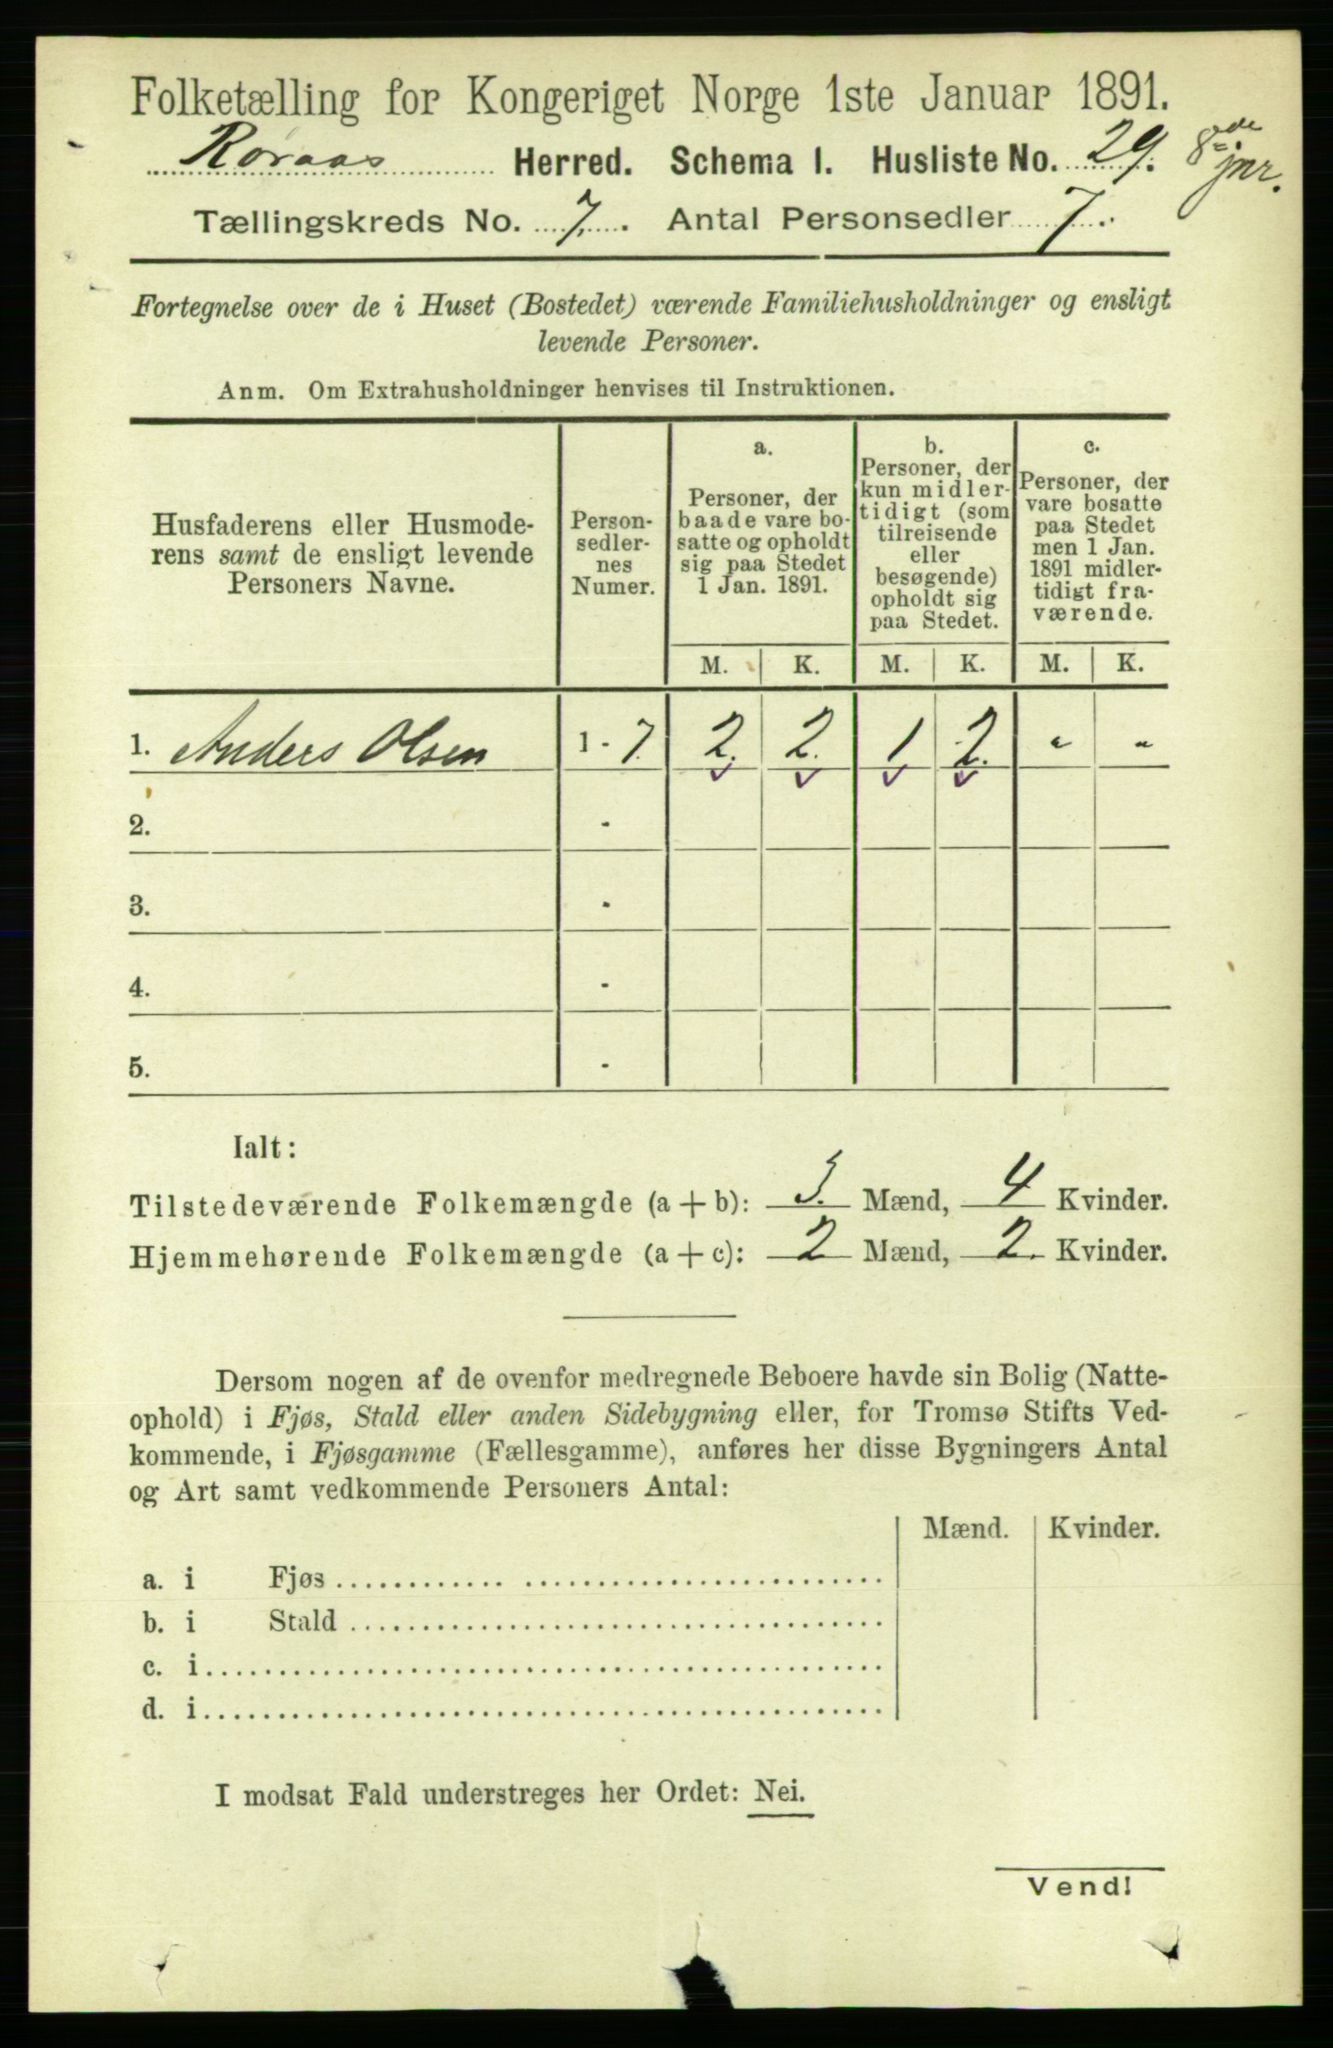 Folketælling for Kongeriget Norge 1ste Januar 1891.
Røraas Herred. Schema 1. Husliste No. 29. 8de jnr.
Tællingskreds No. 7. Antal Personsedler 7.
Fortegnelse over de i Huset (Bostedet) værende Familiehusholdninger og ensligt
levende Personer.
Anm. Om Extrahusholdninger henvises til Instruktionen.
Husfaderens eller Husmode-
rens samt de ensligt levende
Personers Navne.
Person-
sedler-
nes
Numer.
a.
Personer, der
baade vare bo-
satte og opholdt
sig paa Stedet
1 Jan. 1891.
b.
Personer, der
kun midler-
tidigt (som
tilreisende
eller
besøgende)
opholdt sig
paa Stedet.
c.
Personer, der
vare bosatte
paa Stedet
men 1 Jan.
1891 midler-
tidigt fra-
værende.
M. K. M. K. M. K.
1. Anders Olsen 1 - 7 2. 2. 1 2. " "
2. -
3. -
4. -
5. -
Ialt:
Tilstedeværende Folkemængde (a + b): 3. Mænd, 4 Kvinder.
Hjemmehørende Folkemængde (a + c): 2 Mænd, 2. Kvinder.
Dersom nogen af de ovenfor medregnede Beboere havde sin Bolig (Natte-
ophold) i Fjøs, Stald eller anden Sidebygning eller, for Tromsø Stifts Ved-
kommende, i Fjøsgamme (Fællesgamme), anføres her disse Bygningers Antal
og Art samt vedkommende Personers Antal:
Mænd. Kvinder.
a. i Fjøs
b. i Stald
c. i
d. i
I modsat Fald understreges her Ordet: Nei.
Vend!